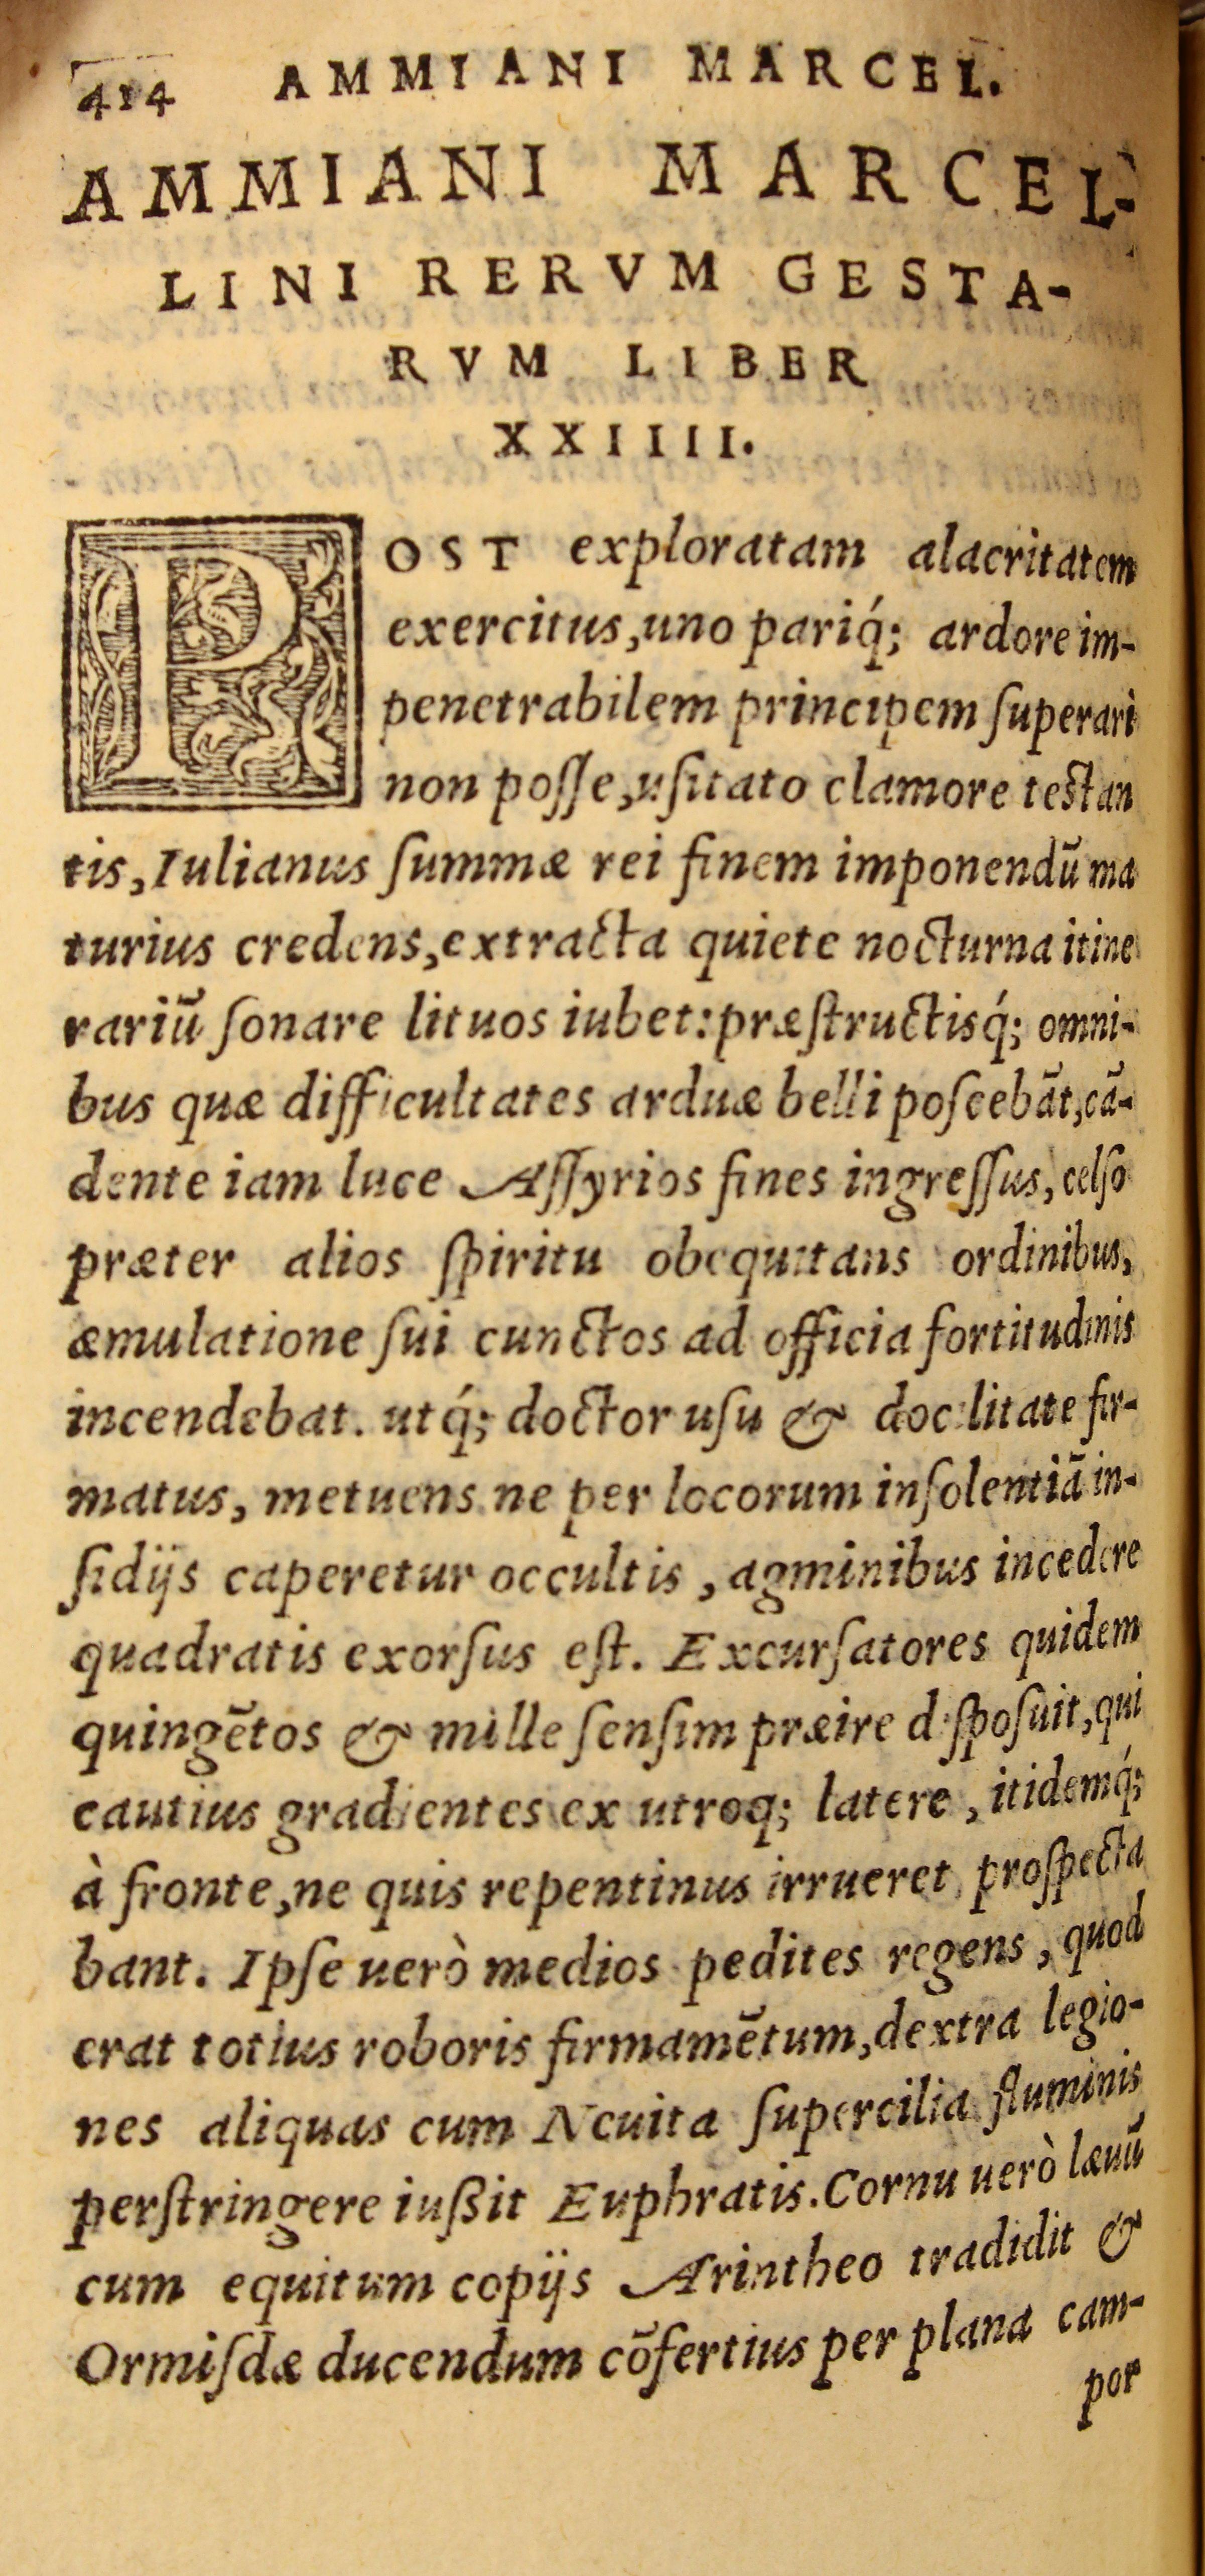 414 AMMIANI MARCEL.
AMMIANI MARCEL-
LINI RERVM GESTA-
RVM LIBER
XXIIII.
POST exploratam alacritatem
exercitus, uno pariq́; ardore im-
penetrabilem principem ſuperari
non poſſe, uſitato clamore teſtan
tis, Iulianus ſummæ rei finem imponendū ma
turius credens, extracta quiete nocturna itine
rariū ſonare lituos iubet: præſtructisq́; omni-
bus quæ difficultates arduæ belli poſcebāt, cā-
dente iam luce Aſſyrios fines ingreſſus, celſo
præter alios ſpiritu obequitans ordinibus,
æmulatione ſui cunctos ad officia fortitudinis
incendebat. utq́; doctor uſu & docilitate fir-
matus, metuens ne per locorum inſolentiā in-
ſidijs caperetur occultis, agminibus incedere
quadratis exorſus eſt. Excurſatores quidem
quingētos & mille ſenſim præire diſpoſuit, qui
cautius gradientes ex utroq; latere, itidemq́;
à fronte, ne quis repentinus irrueret, proſpecta
bant. Ipſe uerò medios pedites regens, quod
erat totius roboris firmamētum, dextra legio-
nes aliquas cum Neuita ſupercilia fluminis
perſtringere iußit Euphratis. Cornu uerò læuū
cum equitum copijs Arintheo tradidit &
Ormiſdæ ducendum cōfertius per plana cam-
por